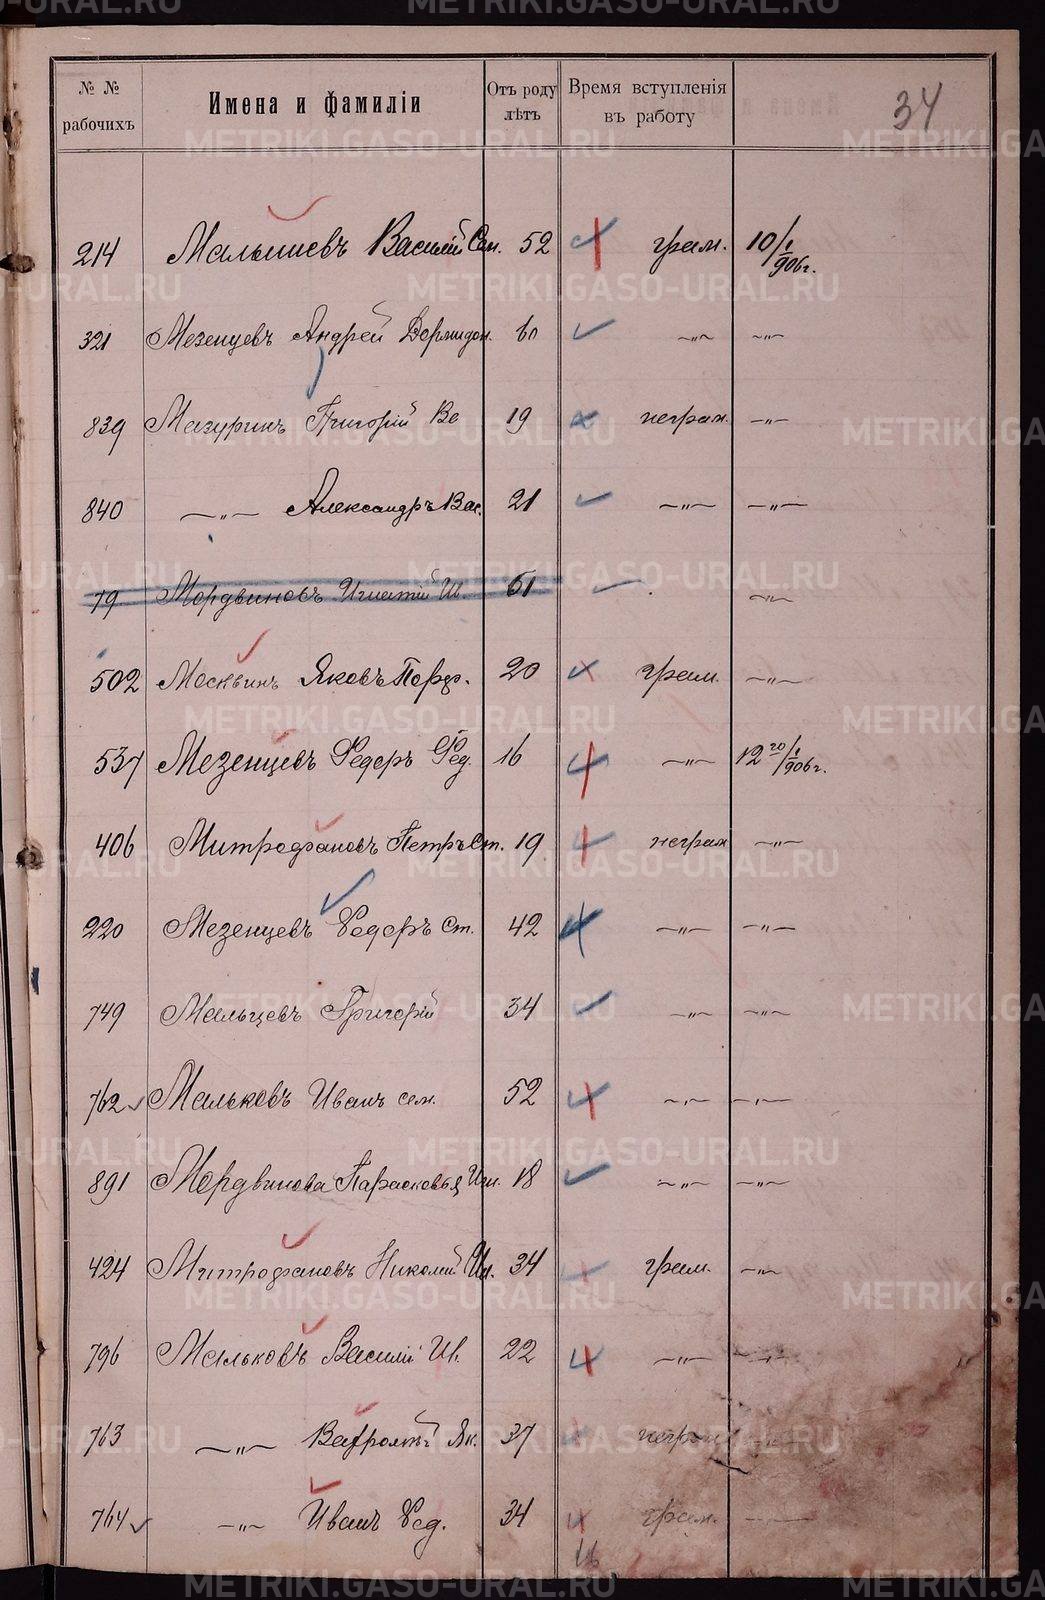 № № рабочихъ | Имена и фамиліи | Отъ роду лѣтъ | Время вступленія въ работу | 34
214 Малышевъ Василій Сем. 52 грам. 10/I 906 г.
321 Мезенцевъ Андрей Дормидон. 60 —„— —„—
839 Мазуринъ Григорій Ва 19 неграм. —„—
840 —„— Александръ Вас. 21 —„— —„—
79 Мордвиновъ Игнатій Ив. 61 —„—
502 Москвинъ Яковъ 20 грам. —„—
537 Мезенцевъ Федоръ Фед. 16 —„— 12 20/I 906 г.
406 Митрофановъ Петръ Ст. 19 неграм —„—
220 Мезенцевъ Федоръ Ст. 42 —„— —„—
749 Мальцевъ Григорій 34 —„— —„—
762 Мальковъ Иванъ сем. 52 —„— —„—
891 Мордвинова Парасковья Игн. 18 —„— —„—
424 Митрофановъ Николай 34 грам. —„—
796 Мальковъ Василій Ив. 22 —„— —„—
763 —„— Як. 37 неграм —„—
764 —„— Иванъ Фед. 34 грам. —„—
16
METRIKI.GASO-URAL.RU